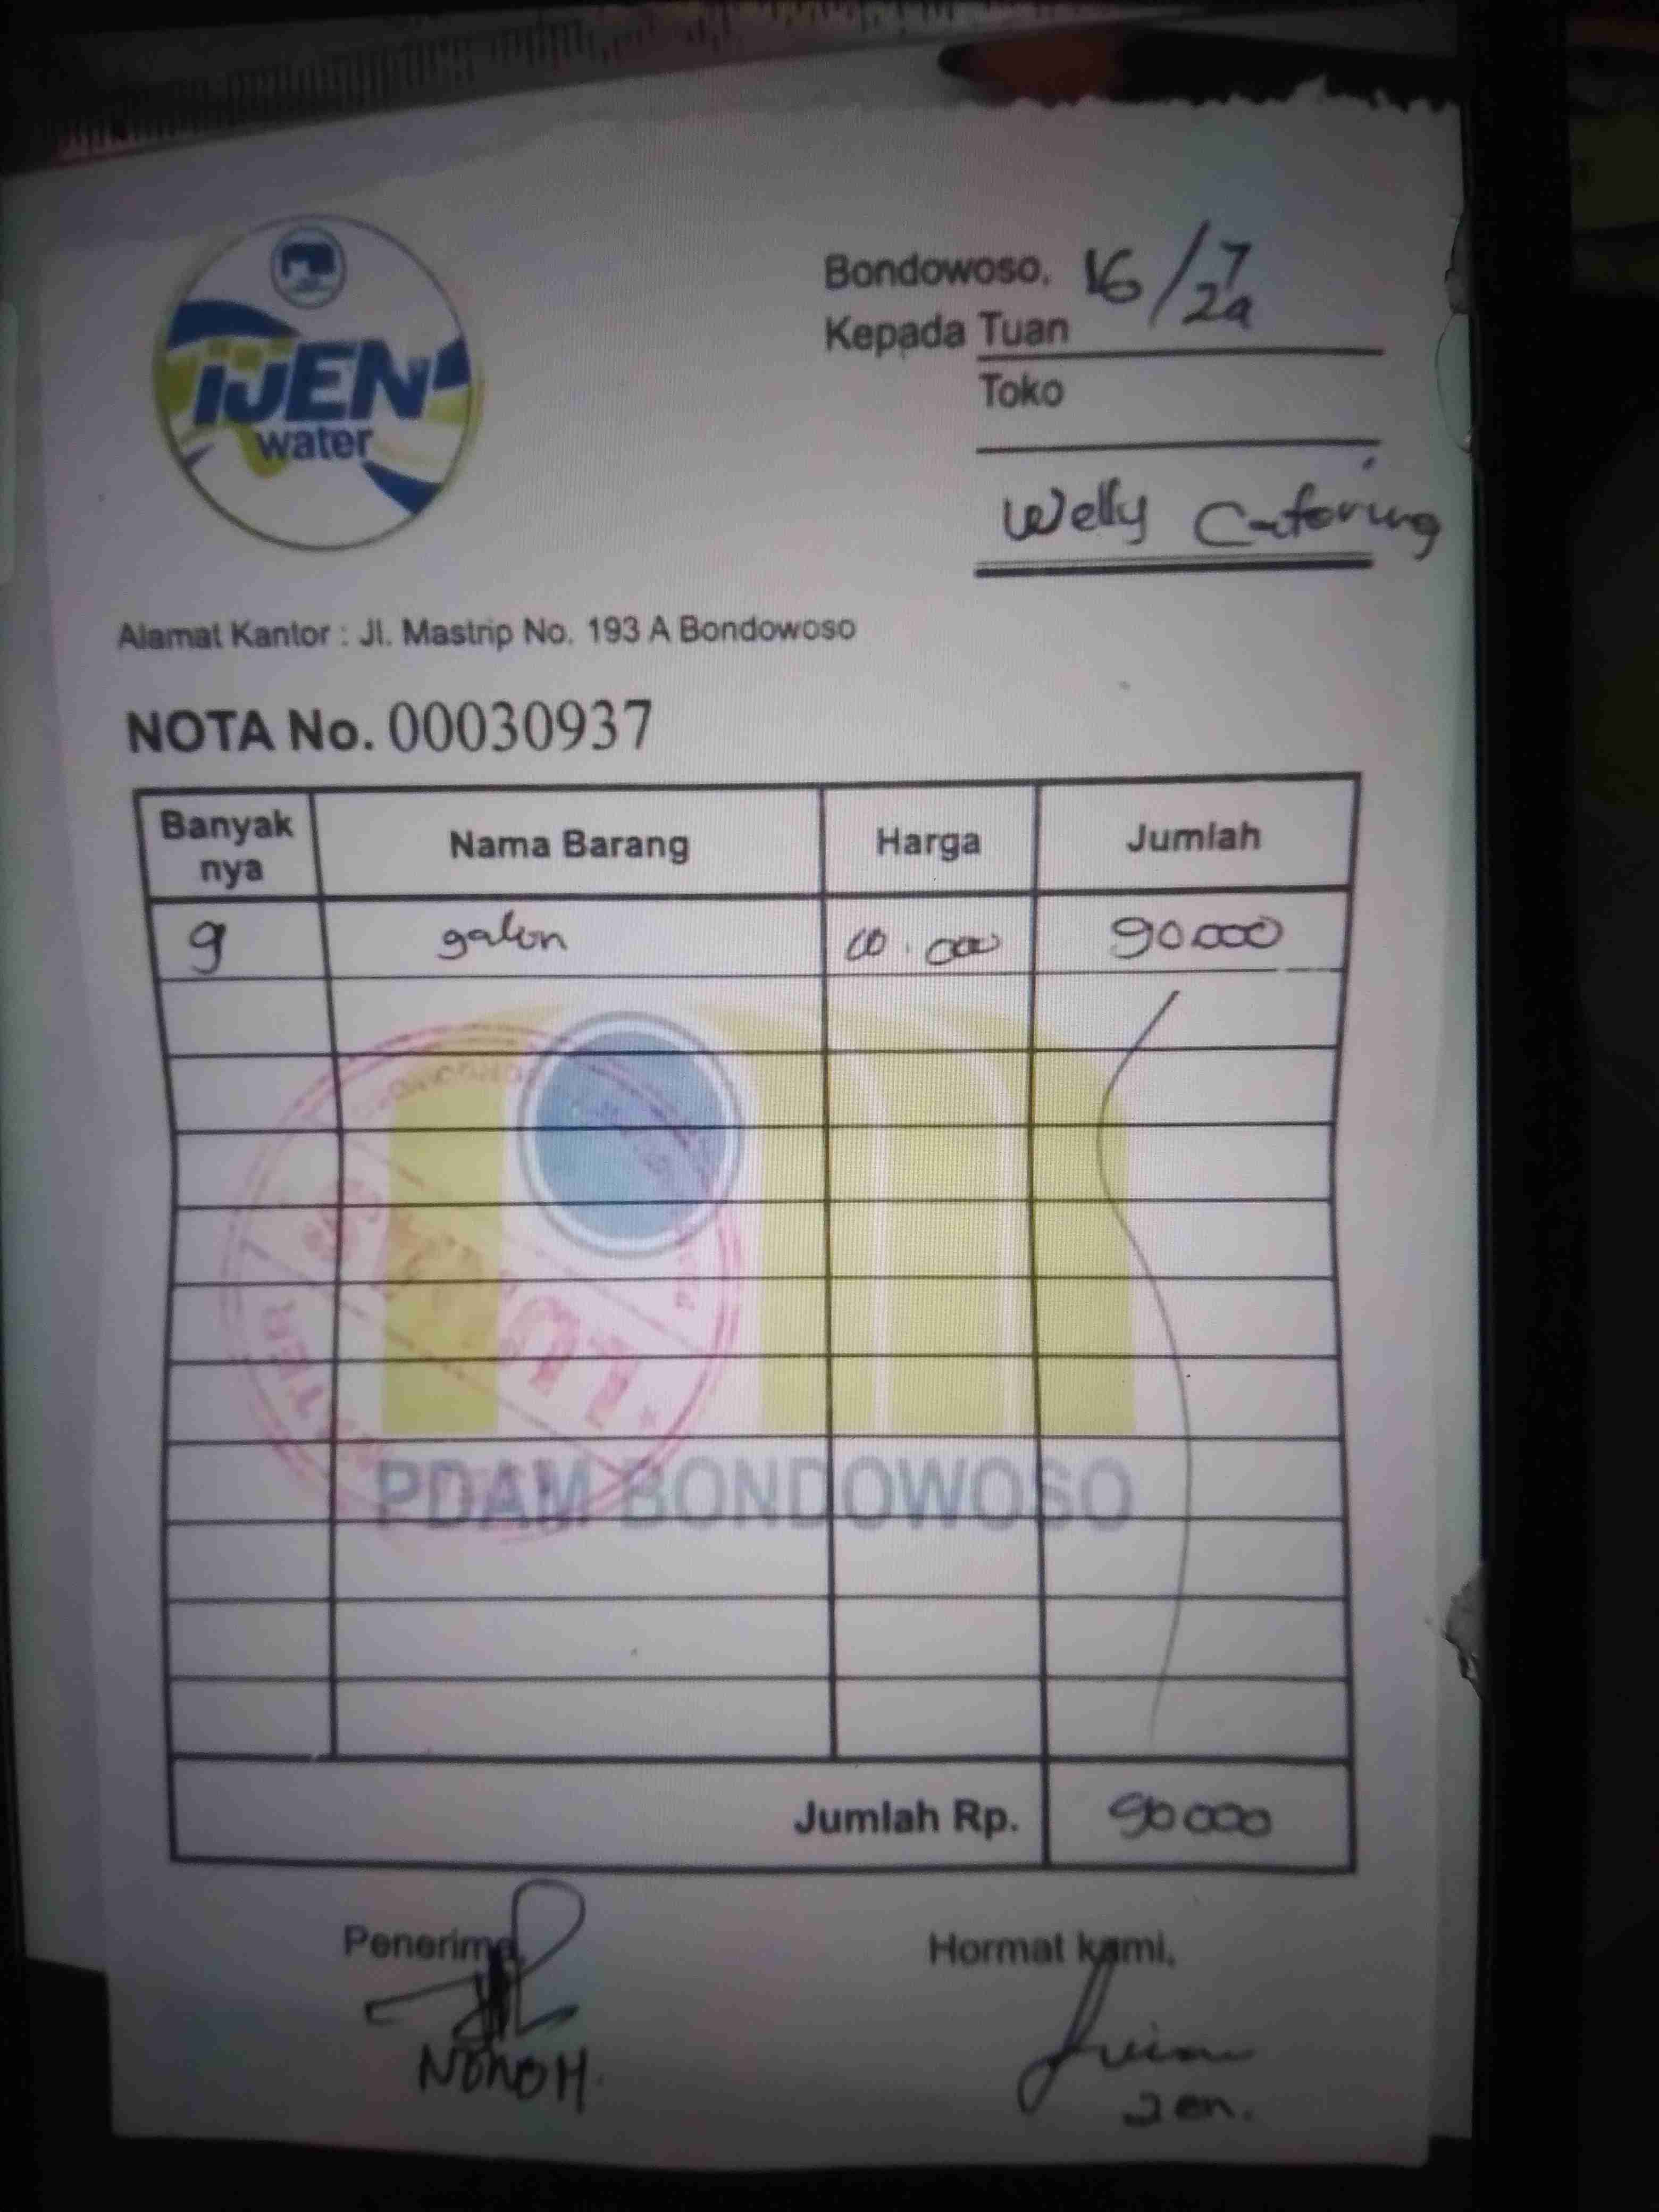 iJEN
water
Bondowoso, 16/7
24
Kepada Tuan
Toko
Welly Catering
Alamat Kantor : Jl. Mastrip No. 193 A Bondowoso
NOTA No. 00030937
Banyak nya Nama Barang Harga Jumlah
9 galon 10.000 90.000
LUNAS
PDAM BONDOWOSO
Jumlah Rp. 90 000
Penerima, Hormat kami,